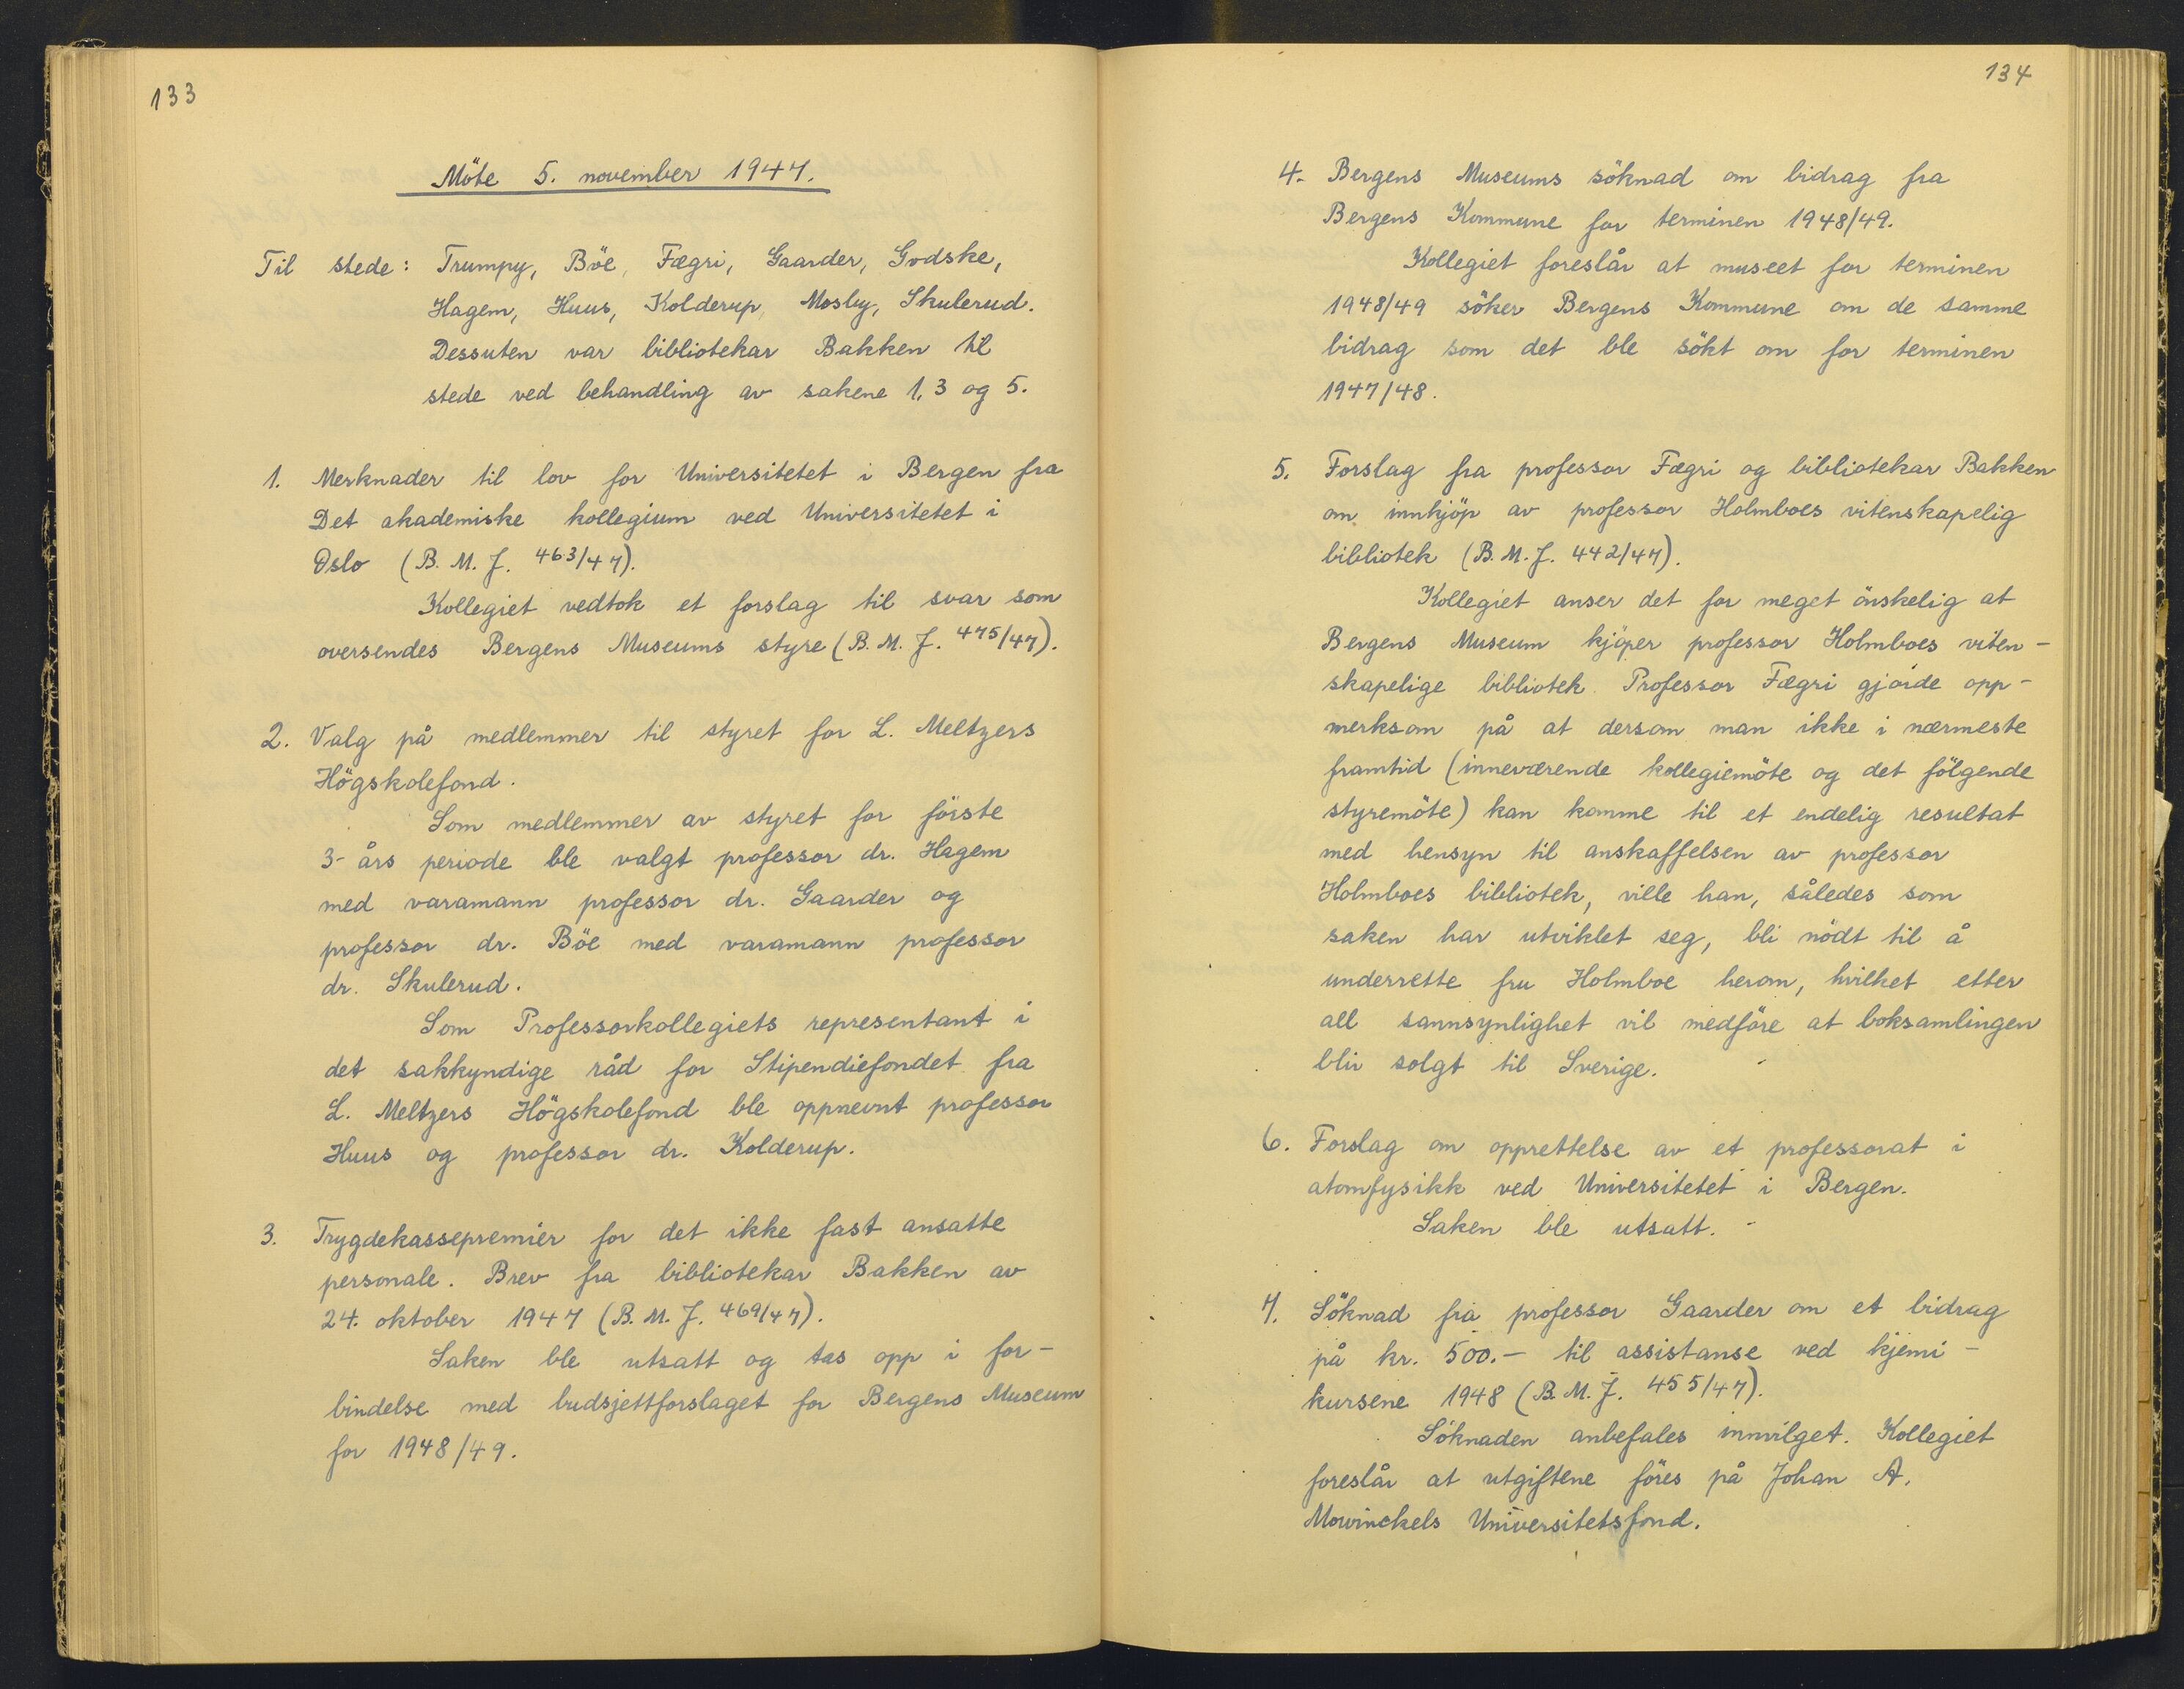 133
Möte 5. november 1947.
Til stede: Trumpy, Böe, Fægri, Gaarder, Godske,
Hagem, Huus, Kolderup, Mosby, Skulerud.
Dessuten var bibliotekar Bakken til
stede ved behandling av sakene 1, 3 og 5.
1. Merknader til lov for Universitetet i Bergen fra
Det akademiske kollegium ved Universitetet i
Oslo (B. M. J. 463/47).
Kollegiet vedtok et forslag til svar som
oversendes Bergens Museums styre (B. M. J. 475/47).
2. Valg på medlemmer til styret for L. Meltzers
Högskolefond.
Som medlemmer av styret for förste
3-års periode ble valgt professor dr. Hagem
med varamann professor dr. Gaarder og
professor dr. Böe med varamann professor
dr. Skulerud.
Som Professorkollegiets representant i
det sakkyndige råd for Stipendiefondet fra
L. Meltzers Högskolefond ble oppnevnt professor
Huus og professor dr. Kolderup.
3. Trygdekassepremier for det ikke fast ansatte
personale. Brev fra bibliotekar Bakken av
24. oktober 1947 (B. M. J. 469/47).
Saken ble utsatt og tas opp i for-
bindelse med budsjettforslaget for Bergens Museum
for 1948/49.
134
4. Bergens Museums söknad om bidrag fra
Bergens Kommune for terminen 1948/49.
Kollegiet foreslår at museet for terminen
1948/49 söker Bergens Kommune om de samme
bidrag som det ble sökt om for terminen
1947/48.
5. Forslag fra professor Fægri og bibliotekar Bakken
om innkjöp av professor Holmboes vitenskapelig
bibliotek (B. M. J. 442/47).
Kollegiet anser det for meget önskelig at
Bergens Museum kjöper professor Holmboes viten-
skapelige bibliotek. Professor Fægri gjorde opp-
merksom på at dersom man ikke i nærmeste
framtid (inneværende kollegiemöte og det fölgende
styremöte) kan komme til et endelig resultat
med hensyn til anskaffelsen av professor
Holmboes bibliotek, ville han, således som
saken har utviklet seg, bli nödt til å
underrette fru Holmboe herom, hvilket etter
all sannsynlighet vil medföre at boksamlingen
blir solgt til Sverige.
6. Forslag om opprettelse av et professorat i
atomfysikk ved Universitetet i Bergen.
Saken ble utsatt.
7. Söknad fra professor Gaarder om et bidrag
på kr. 500.- til assistanse ved kjemi-
kursene 1948 (B. M. J. 455/47).
Söknaden anbefales innvilget. Kollegiet
foreslår at utgiftene föres på Johan A.
Mowinckels Universitetsfond.